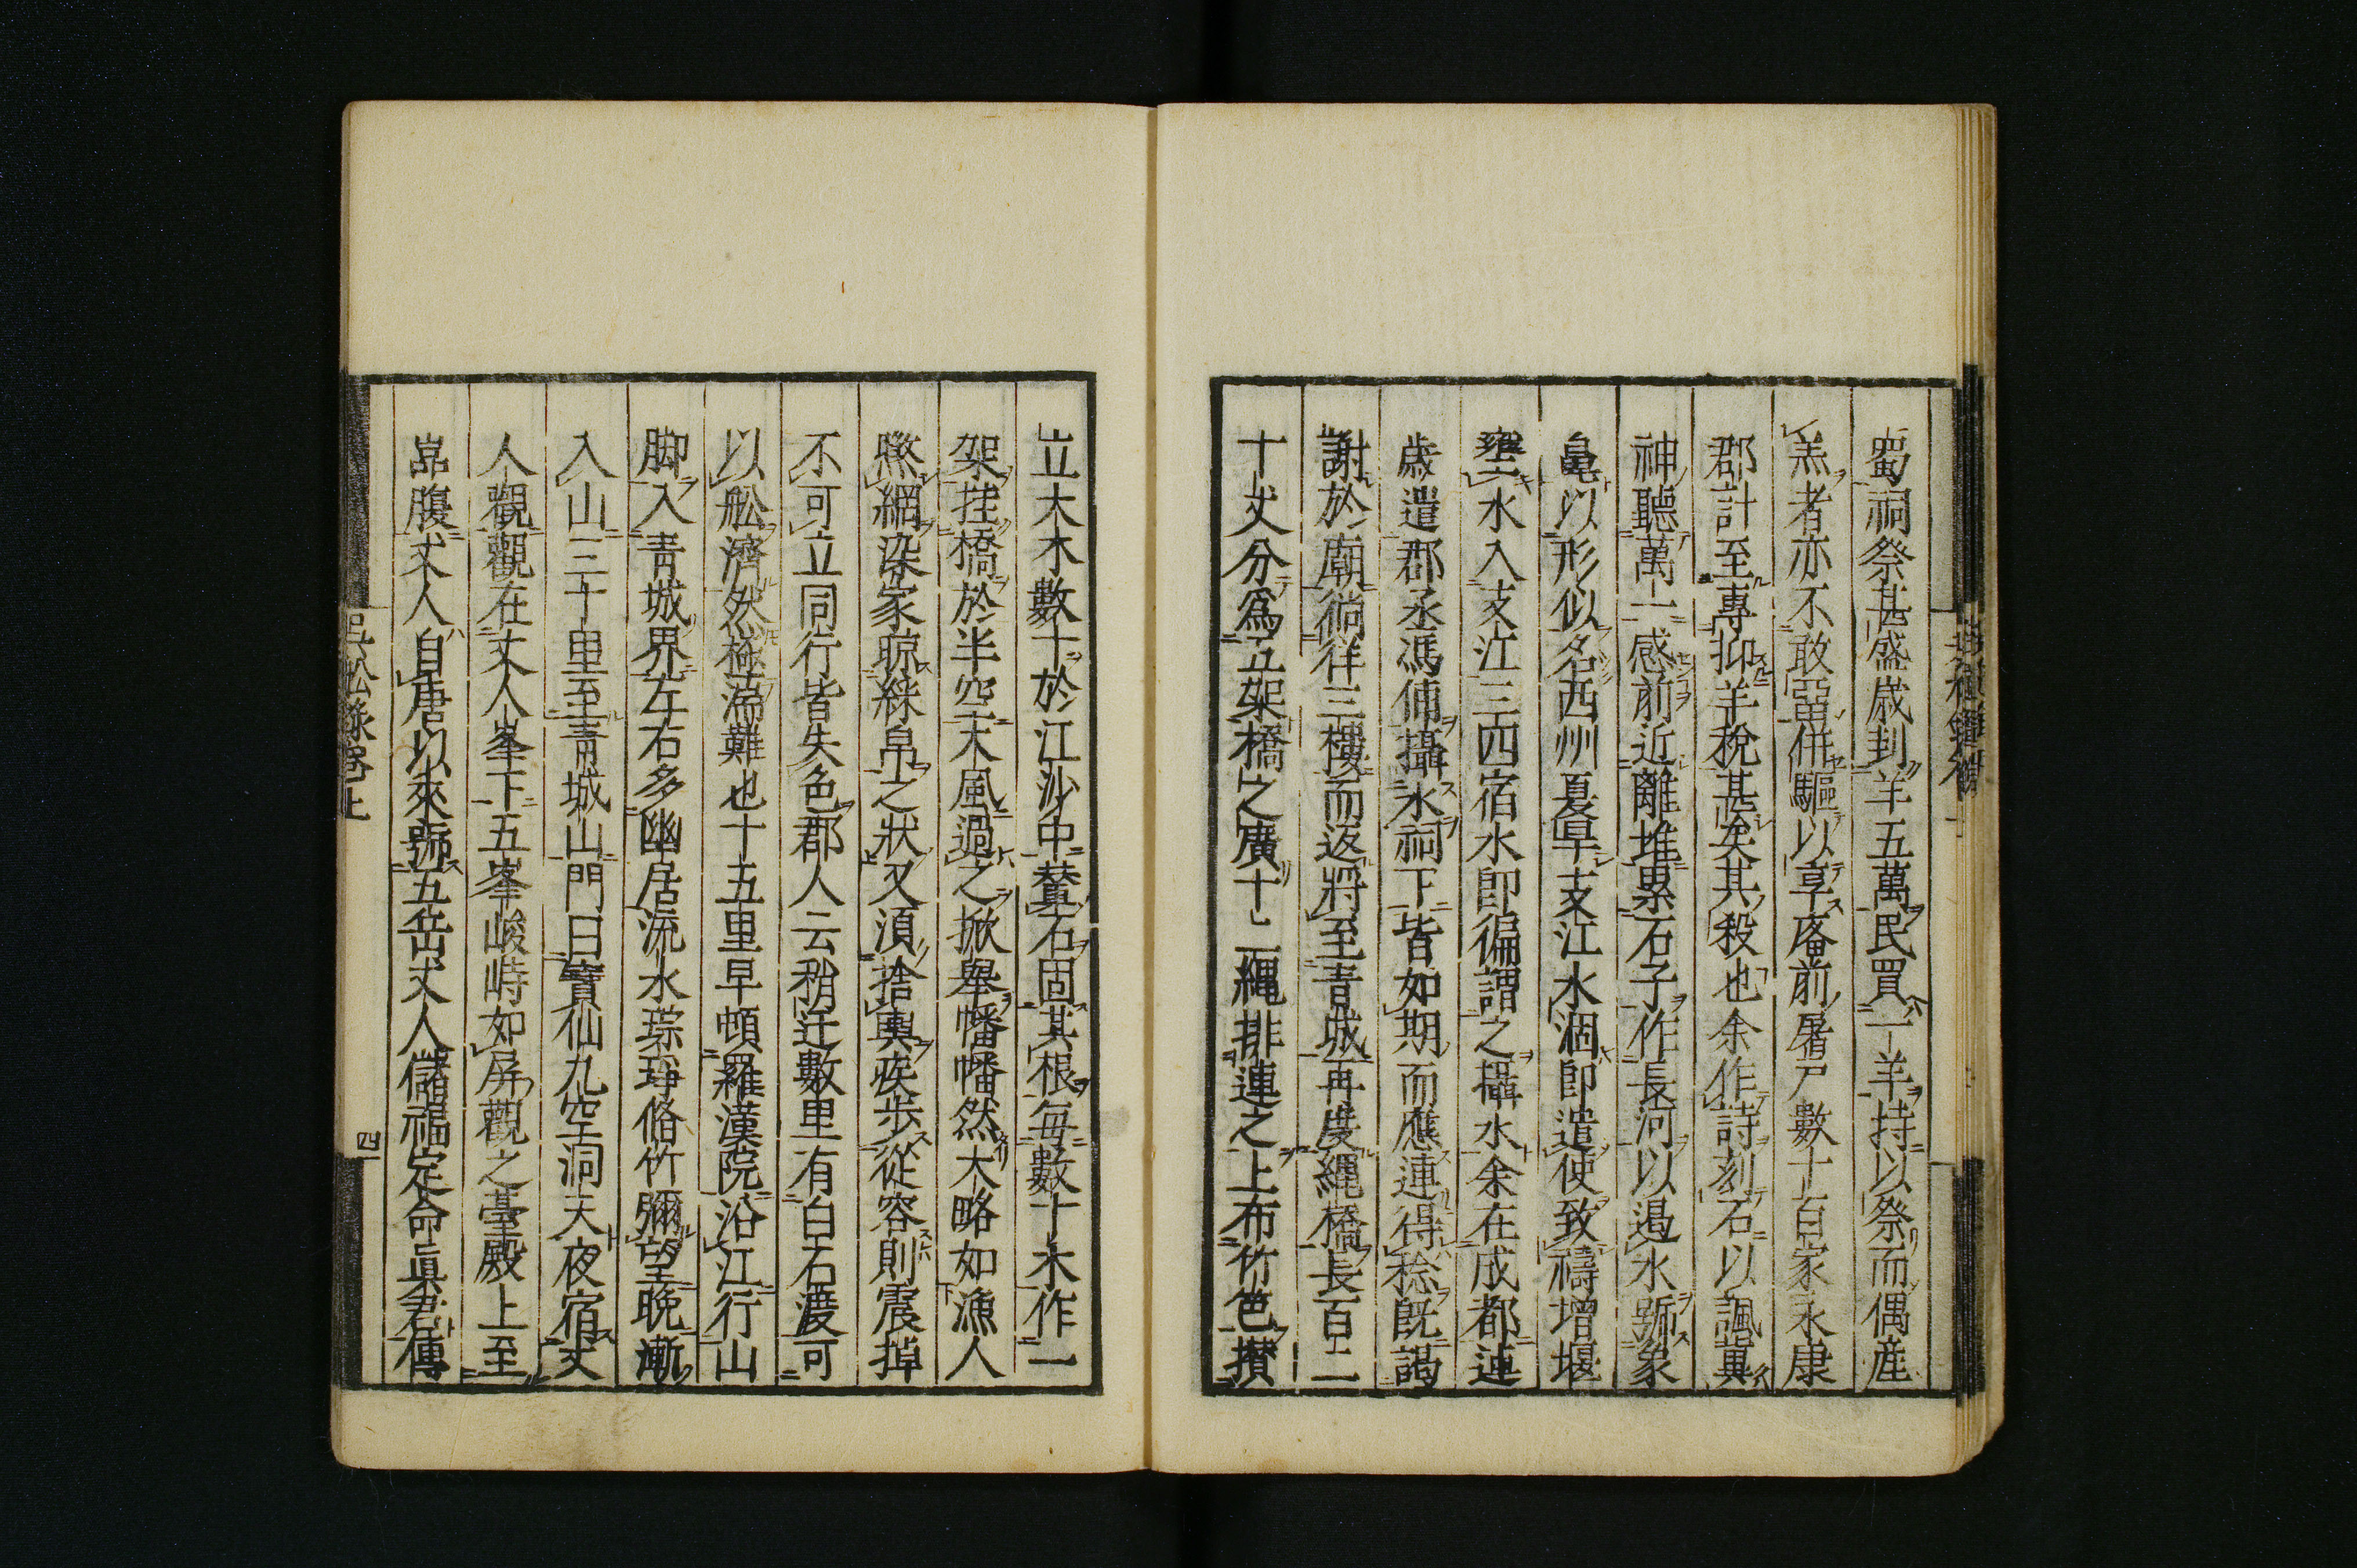 蜀祠祭甚盛歳刲羊五萬民買一羊持以祭而偶産
羔者亦不敢㽞併驅以享庙前屠尸數十百家永康
郡計至專抑羊稅甚矣其殺也余作詩刻石以諷冀
神聽萬一感前近離堆累石子作長河以遏水號象
鼻以形似名西州夏旱支江水涸即遣使致禱増堰
壅水入支江三四宿水即徧謂之攝水余在成都連
歳遣郡丞馮俌攝水祠下皆如期而應連得稔既謁
謝於廟徜徉三樓而返將至青城再度䋲橋長百二
十丈分爲五架橋之廣十二䋲排連之上布竹笆攅
立大木數十於江沙中輦石固其根每數十木作一
架挂橋於半空大風過之掀舉幡幡然大略如漁人
㬠網染家晾綵帛之狀又湏捨輿疾步從容則震掉
不可立同行皆失色郡人云稍迂數里有白石渡可
以舩濟然極湍難也十五里早頓羅漢院沿江行山
脚入青城界左右多幽居流水琮琤脩竹彌望晩漸
入山三十里至青城山門曰寶仙九空洞天夜宿丈
人觀觀在丈人峯下五峯峻峙如屏觀之臺殿上至
嵓腹丈人自唐以來號五岳丈人儲福定命眞君傳
吳舩錄卷上
四